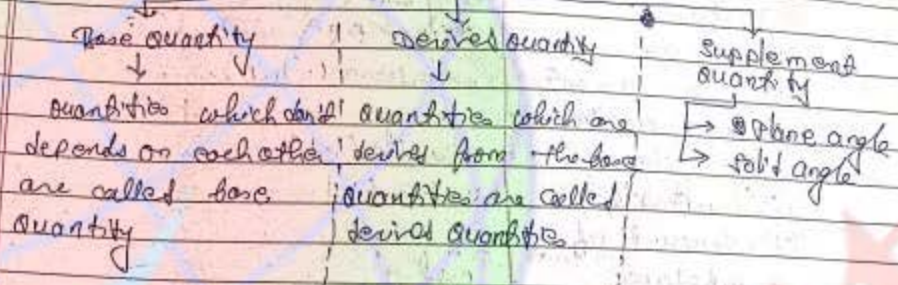 Base quantity
↓
quantities which don't
depends on each other
are called base
quantity
Derived quantity
↓
quantities which are
derived from the base
quantities are called
derived quantities
Supplement
quantity
→ plane angle
→ solid angle